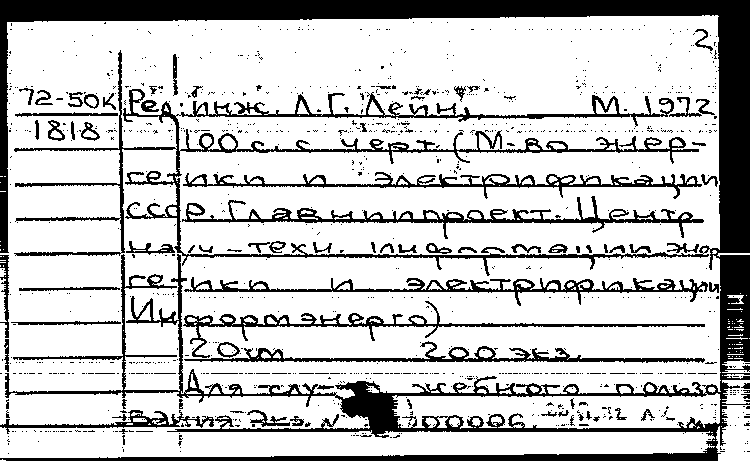 2
72-50К [Ред. инж. Л.Г. Лейн]. М., 1972
1818 100 с. с черт. (М-во энер-
гетики и электрификации
СССР. Главниипроект. Центр
науч-техн. информации энер
гетики и электрификации
Информэнерго)
20 см 200 экз.
Для слу- жебного пользо
вания Экз. N 00006.